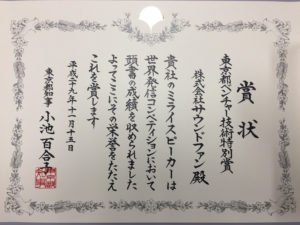 賞状
東京都ベンチャー技術特別賞
株式会社サウンドファン殿
貴社のミライスピーカーは
世界発信コンペティションにおいて
頭書の成績を収められました
よってここにその栄誉をたたえ
これを賞します
平成二十九年十一月十五日
東京都知事 小池百合子